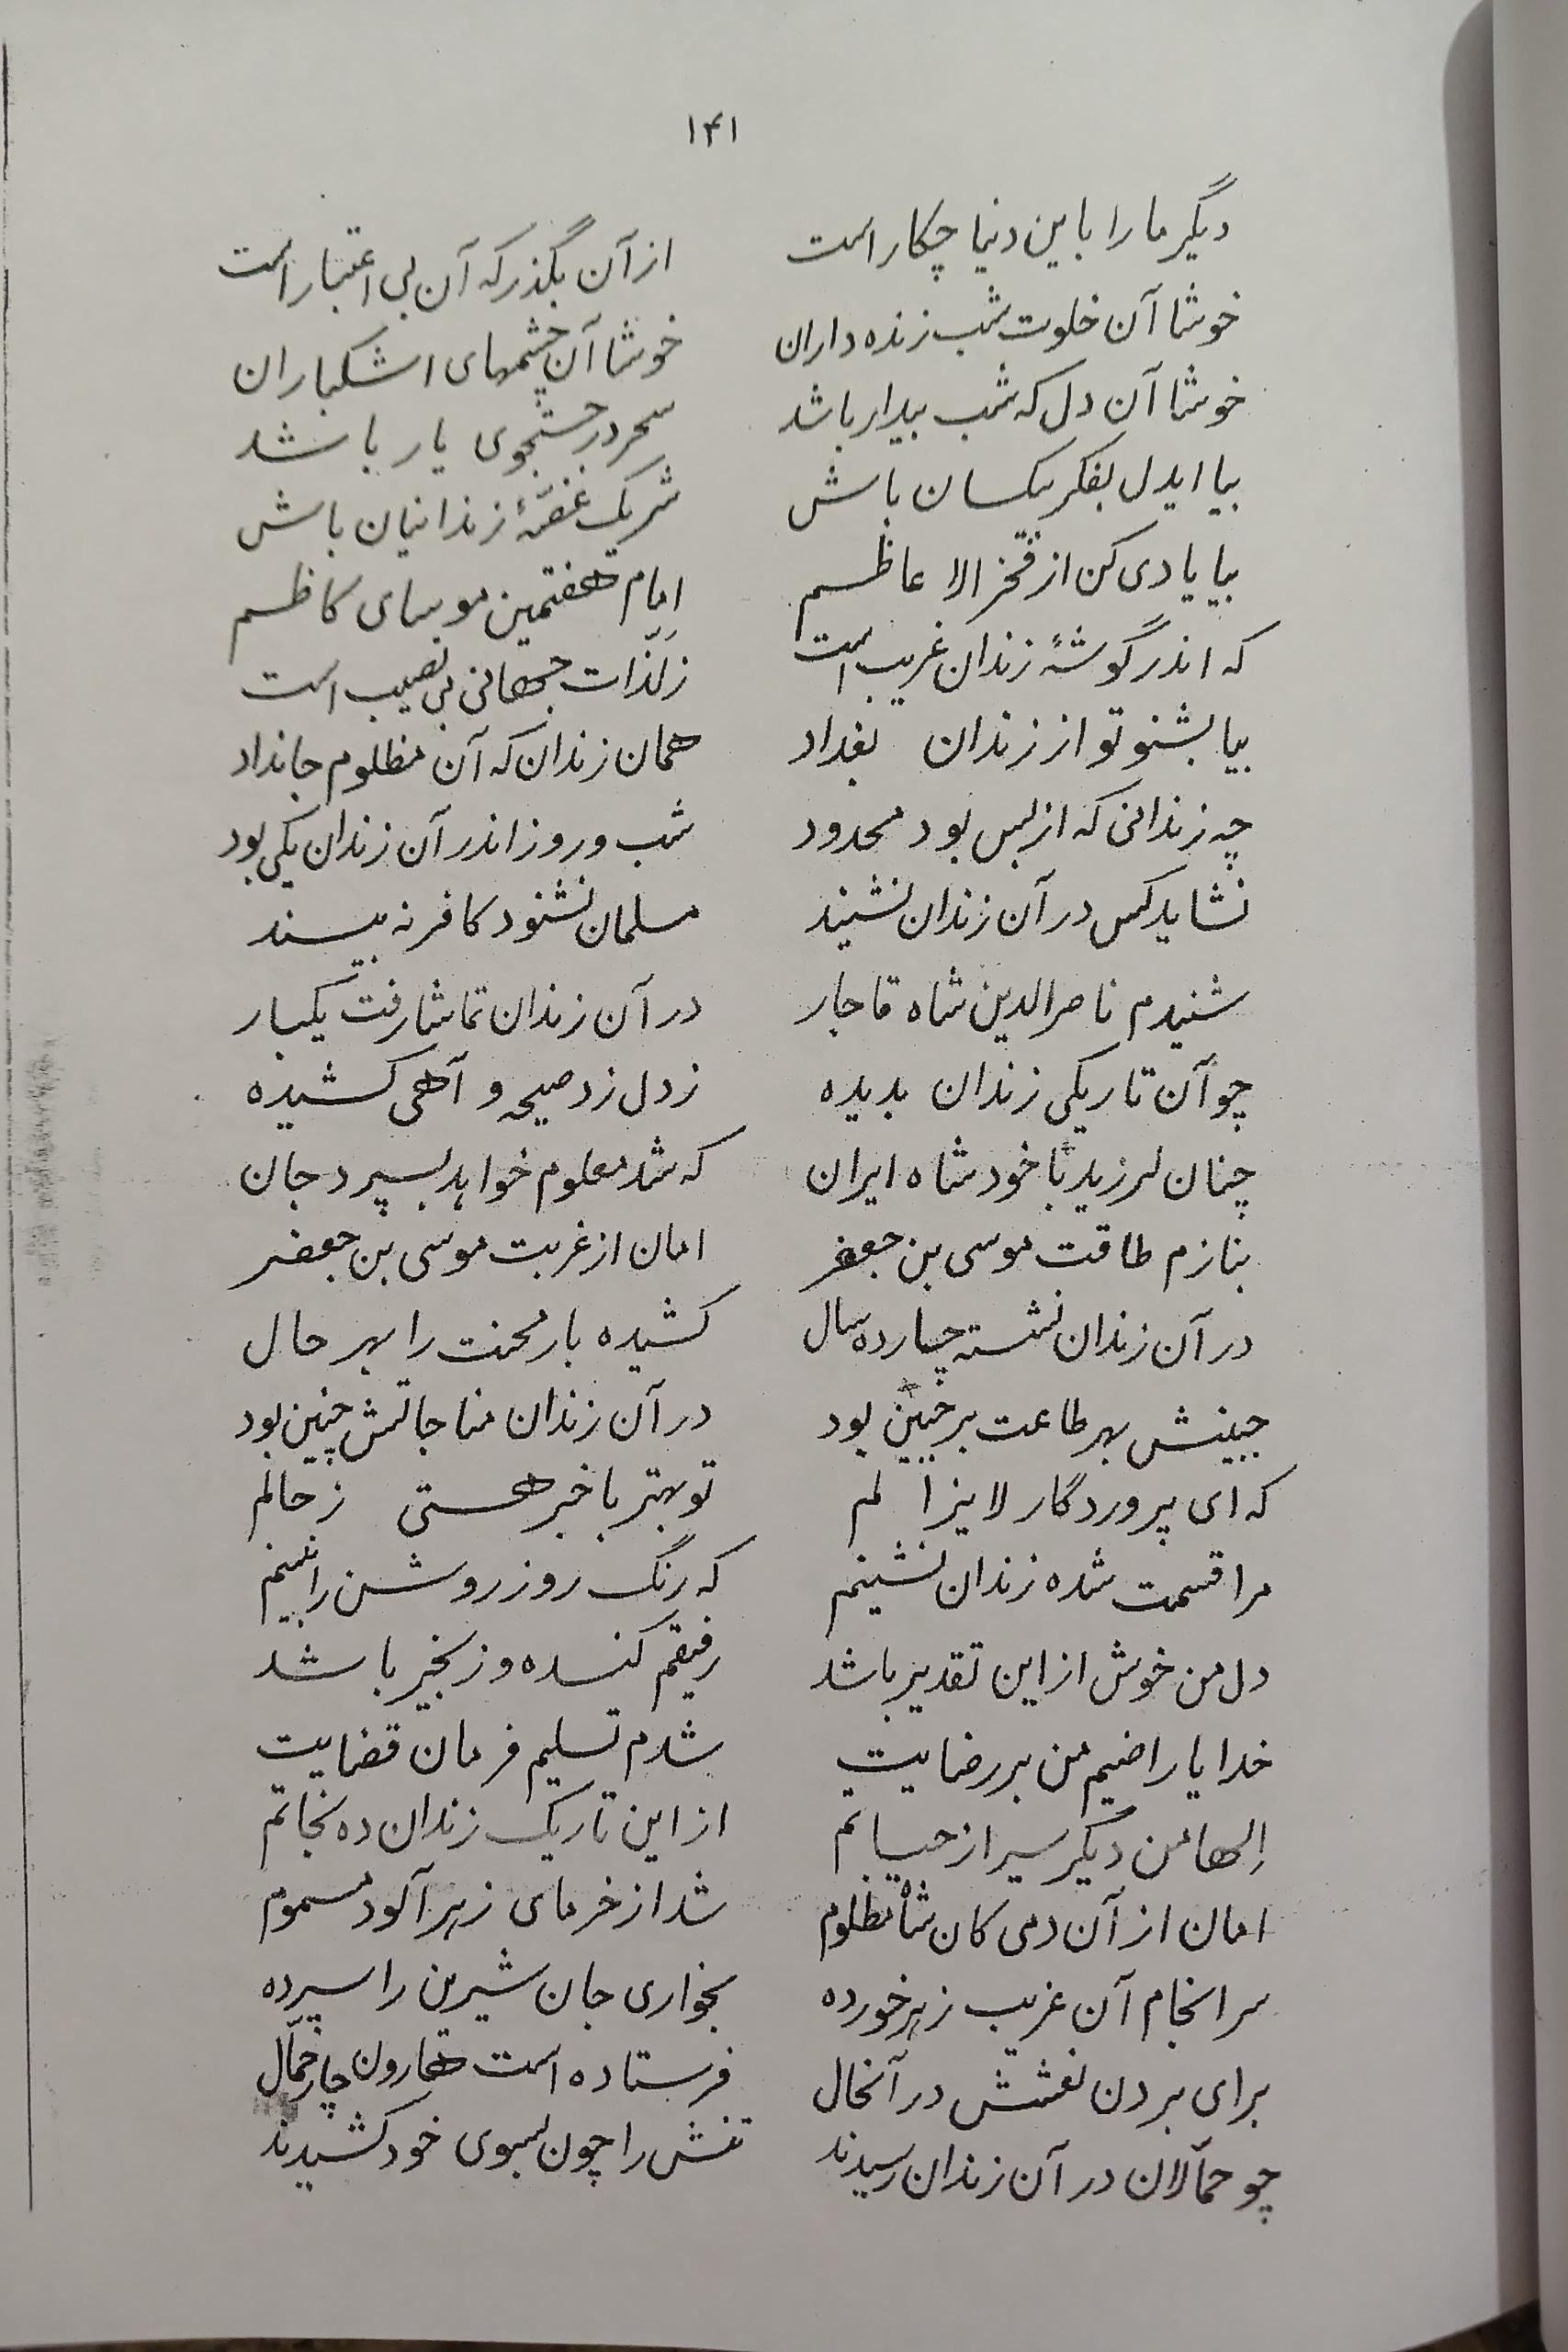 ۱۴۱
دیگر ما را باین دنیا چکار است از آن بگذر که آن بی اعتبار است
خوشا آن خلوت شب زنده داران خوشا آن چشمهای اشکباران
خوشا آن دل که شب بیدار باشد سحر در جستجوی یار باشد
بیا ایدل بفکر بیکسان باش شریک غصّهٔ زندانیان باش
بیا یادی کن از فخر الا عاظم امام هفتمین موسای کاظم
که اندر گوشهٔ زندان غریب است ز لذّات جهانی بی نصیب است
بیا بشنو تو از زندان بغداد همان زندان که آن مظلوم جانداد
چه زندانی که از بس بود محدود شب و روز اندر آن زندان یکی بود
نشاید کس در آن زندان نشیند مسلمان نشنود کافر نه بیند
شنیدم ناصرالدین شاه قاجار در آن زندان تماشا رفت یکبار
چو آن تاریکی زندان بدیده ز دل زد صیحه و آهی کشیده
چنان لرزید با خود شاه ایران که شد معلوم خواهد بسپرد جان
بنازم طاقت موسی بن جعفر امان از غربت موسی بن جعفر
در آن زندان نشسته چارده سال کشیده بار محنت را بهر حال
جبینش بهر طاعت بر چنین بود در آن زندان مناجاتش چنین بود
که ای پروردگار لایزالم تو بهتر با خبر هستی ز حالم
مرا قسمت شده زندان نشینم که رنگ روز روشن را نبینم
دل من خوش از این تقدیر باشد رفیقم کنده و زنجیر باشد
خدایا راضیم من بر رضایت شدم تسلیم فرمان قضایت
اِلها من دیگر سیر از حیاتم از این تاریک زندان ده نجاتم
امان از آن دمی کان شاه مظلوم شد از خرمای زهر آلود مسموم
سرانجام آن غریب زهر خورده بخواری جان شیرین را سپرده
برای بردن نعشش در آنحال فرستاده است هارون چار حمّال
چو حمّالان در آن زندان رسیدند تنش را چون بسوی خود کشیدند